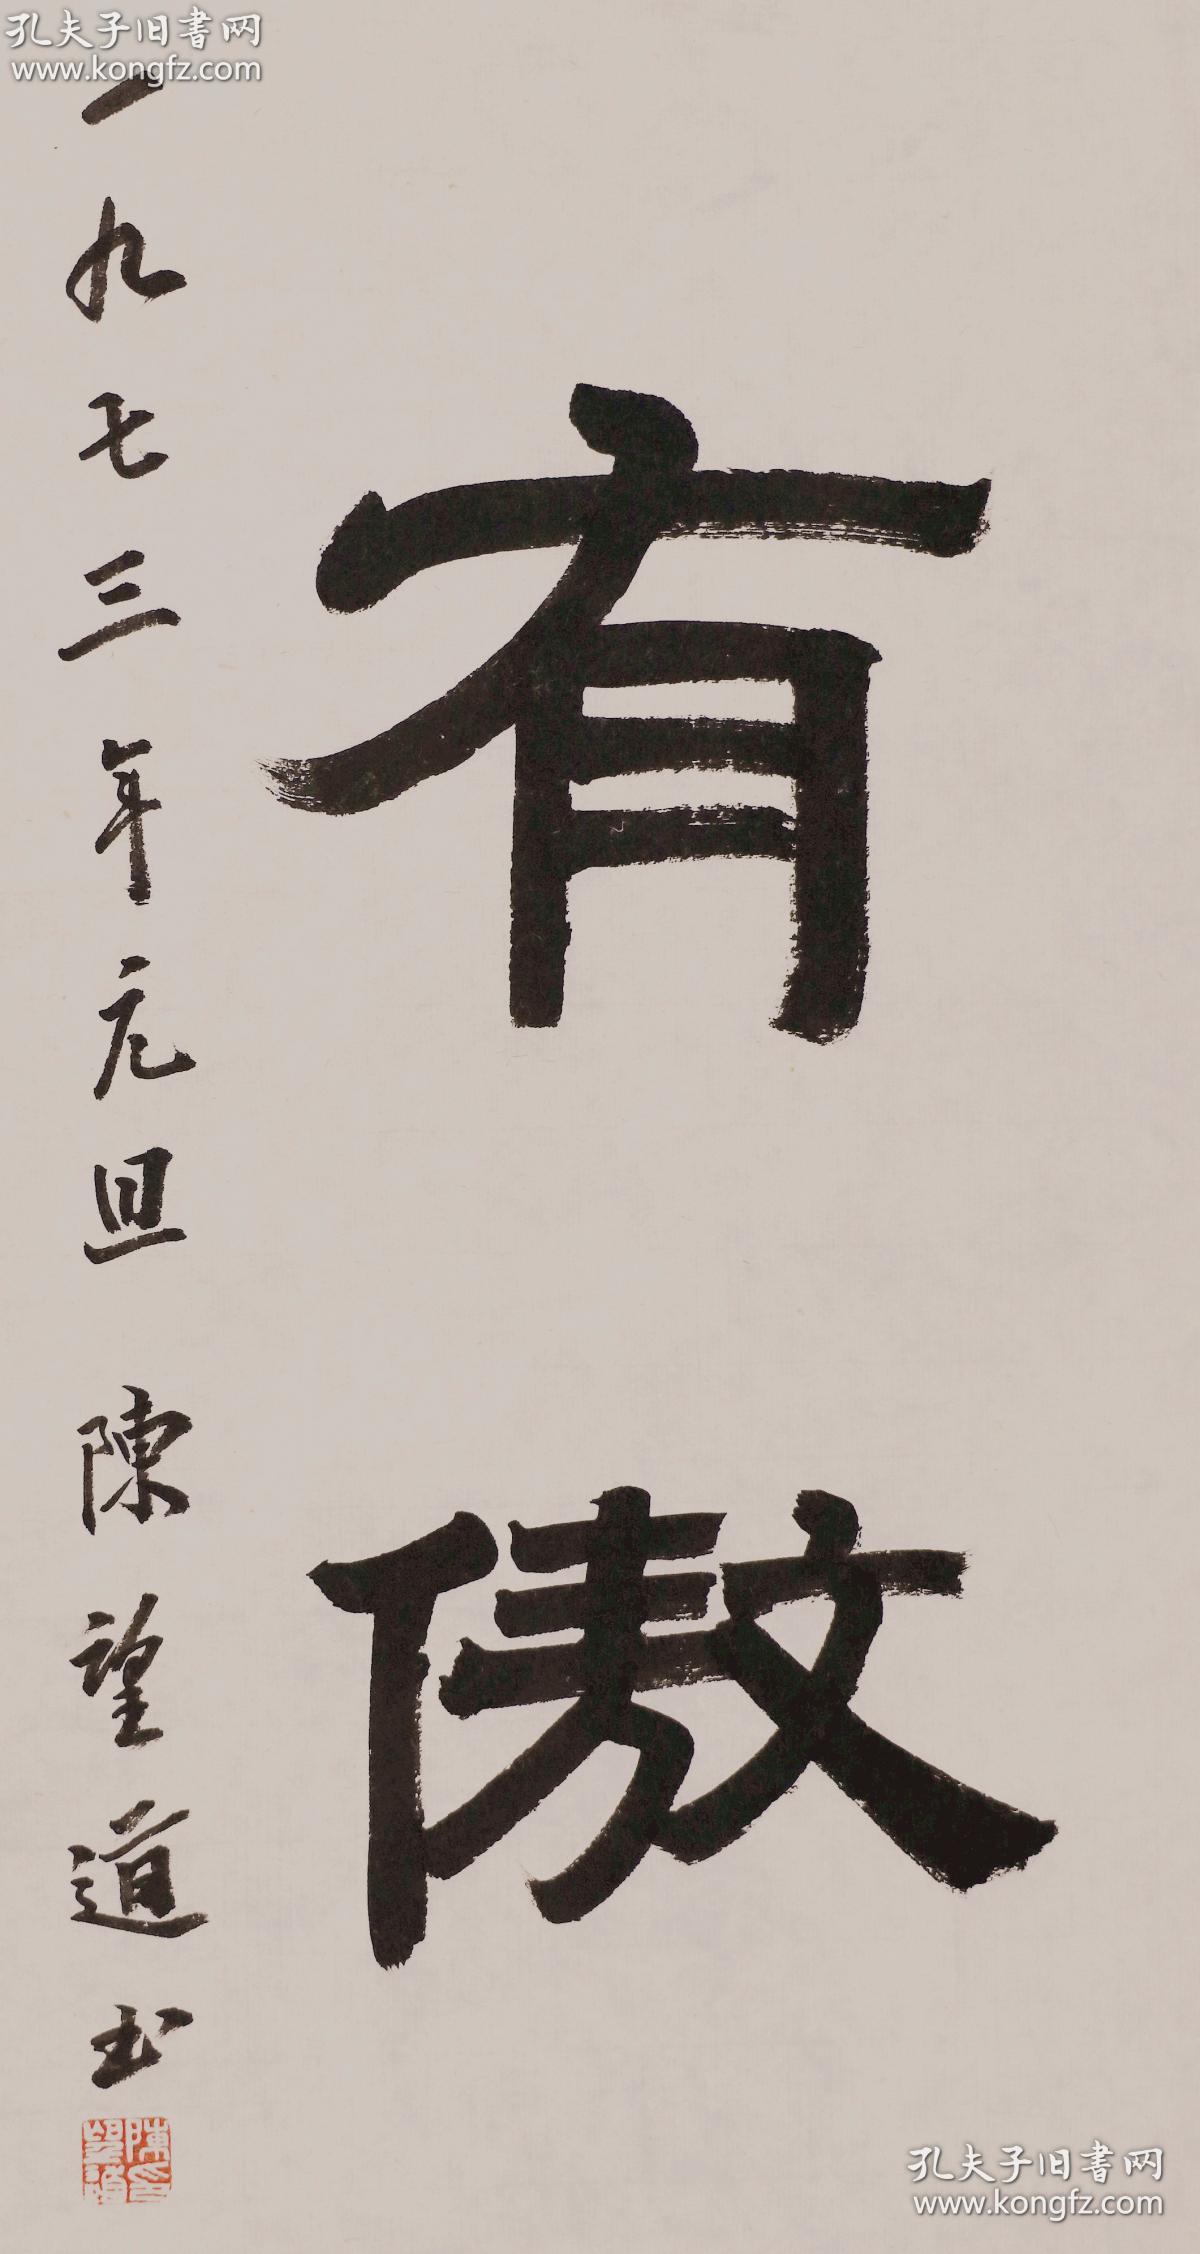 孔夫子旧書网
www.kongfz.com
有傲
一九七三年元旦 陳望道书
陳望道印
孔夫子旧書网
www.kongfz.com